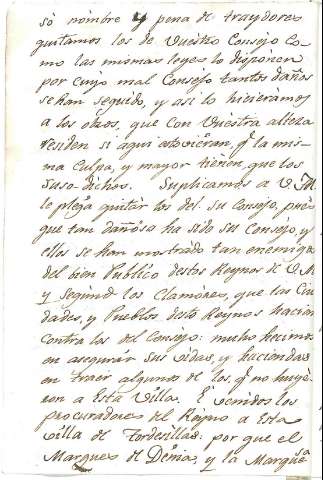 só nombre y pena de traydores
quitamos los de Vuestro Consejo Co-
mo las mismas leyes lo disponen
por cuyo mal Consejo tantos daños
se han seguido, y asi lo hicieramos
a los otros, que con Vuestra alteza
residen si aqui estovieran, q.e la mis-
ma culpa, y mayor tienen, que los
suso dichos. Suplicamos a V.M.
le plega quitar los del su Consejo, pues
que tan dañosa ha sido su Consejo, y
ellos se han mostrado tan enemigos
del bien Publico destos Reynos de V.M.
y segund los Clamores, que las Ciu-
dades, y Pueblos desto Reynos hacian
contra los del Consejo: mucho hecimos
en asegurar sus vidas, y haciendas
en traer algunos de los, q.e no huye-
ron a esta Villa. E venidos los
procuradores del Reyno a esta
Villa de Tordesillas: por que el
Marques de Denia, y la Marqu.sa